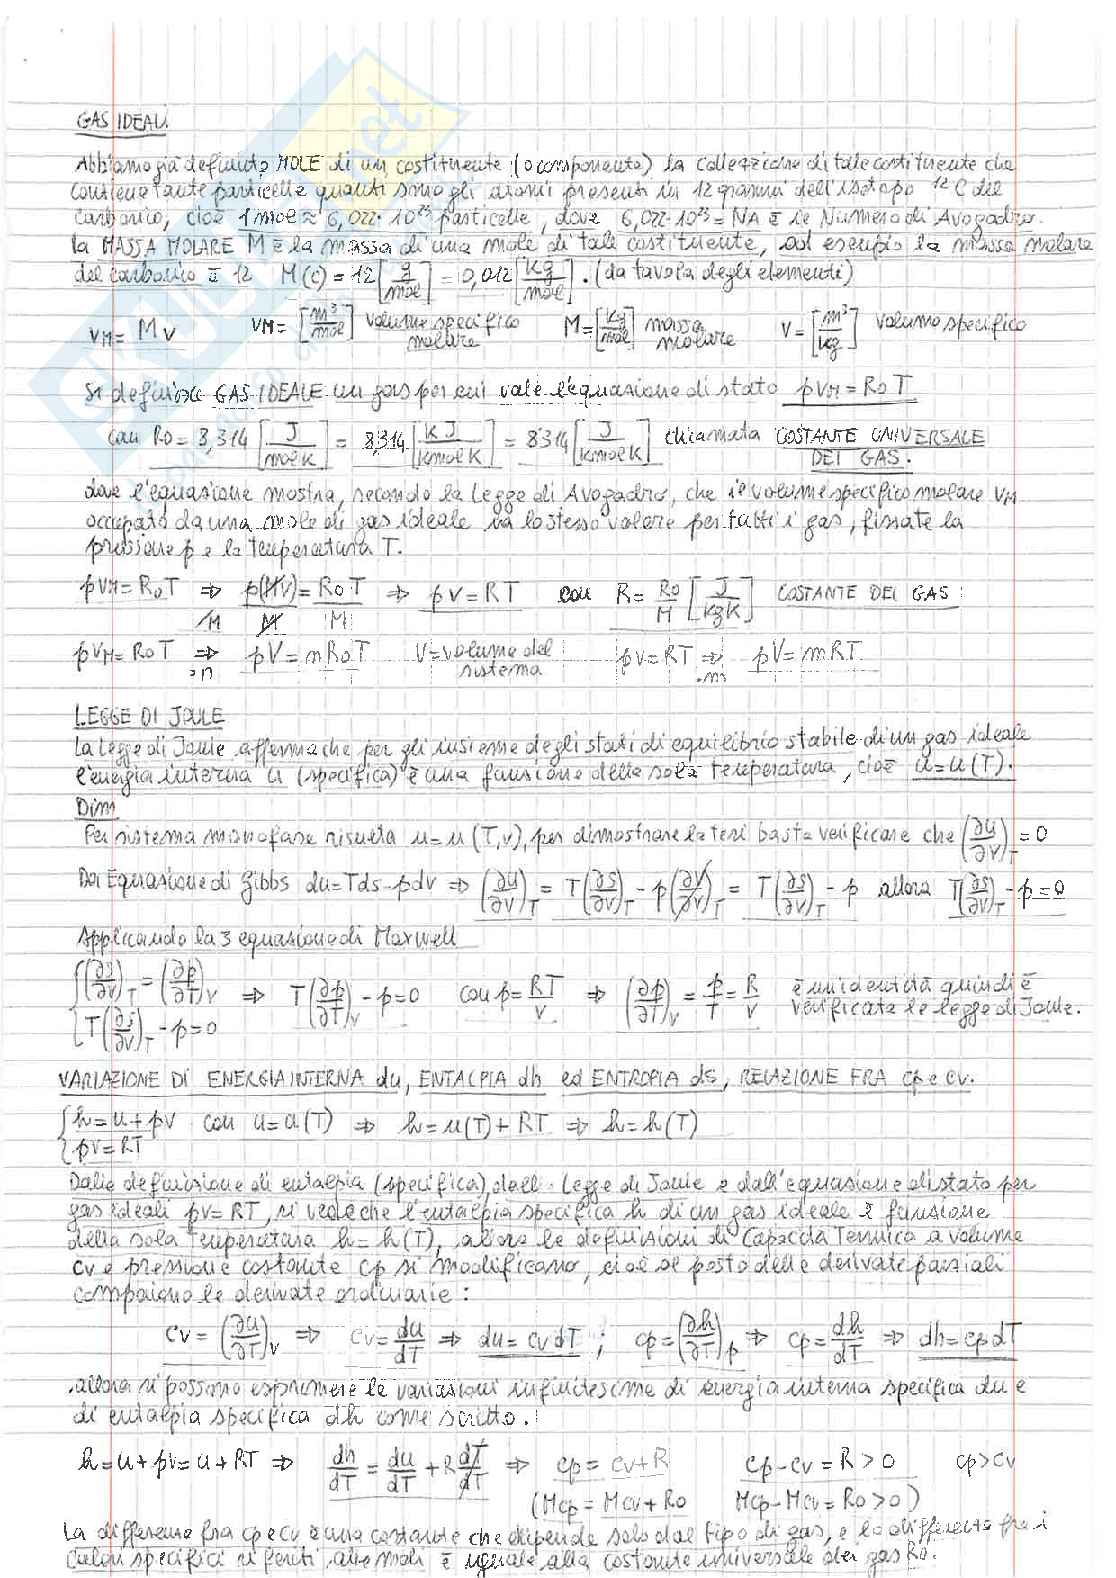 GAS IDEALI.
Abbiamo già definito MOLE di un costituente (o componente) la collezione di tale costituente che
contiene tante particelle quanti sono gli atomi presenti in 12 grammi dell'isotopo ¹²C del
carbonio, cioè 1 mol ≈ 6,022·10²³ particelle, dove 6,022·10²³ = NA è il Numero di Avogadro.
La MASSA MOLARE M è la massa di una mole di tale costituente, ad esempio la massa molare
del carbonio è 12 M(C) = 12 [g/mol] = 0,012 [kg/mol]. (da tavola degli elementi)
vM = M v vM = [m³/mol] volume specifico molare M = [kg/mol] massa molare v = [m³/kg] volume specifico
Si definisce GAS IDEALE un gas per cui vale l'equazione di stato pvM = R0 T
con R0 = 8,314 [J/mol K] = 8,314 [kJ/kmol K] = 8314 [J/kmol K] chiamata COSTANTE UNIVERSALE
DEI GAS.
dove l'equazione mostra, secondo la Legge di Avogadro, che il volume specifico molare vM
occupato da una mole di gas ideale ha lo stesso valore per tutti i gas, fissate la
pressione p e la temperatura T.
pvM = R0T ⇒ p(Mv)/M = R0T/M ⇒ pv = RT con R = R0/M [J/kg K] COSTANTE DEL GAS
/M
pvM = R0T ⇒ pV = nR0T V = volume del sistema pv = RT ⇒ pV = mRT
·n ·m
LEGGE DI JOULE
La Legge di Joule afferma che per gli insieme degli stati di equilibrio stabile di un gas ideale
l'energia interna u (specifica) è una funzione della sola temperatura, cioè u = u(T).
Dim
Per sistema monofase risulta u = u(T,v), per dimostrare la tesi basta verificare che (∂u/∂v)T = 0
Da Equazione di Gibbs du = Tds - pdv ⇒ (∂u/∂v)T = T(∂s/∂v)T - p(∂v/∂v)T = T(∂s/∂v)T - p allora T(∂s/∂v)T - p = 0
Applicando la 3 equazione di Maxwell
{(∂s/∂v)T = (∂p/∂T)v ⇒ T(∂p/∂T)v - p = 0 con p = RT/v ⇒ (∂p/∂T)v = p/T = R/v è un'identità quindi è
{T(∂s/∂v)T - p = 0 verificata la legge di Joule.
VARIAZIONE DI ENERGIA INTERNA du, ENTALPIA dh ed ENTROPIA ds, RELAZIONE FRA cp e cv.
{h = u + pv con u = u(T) ⇒ h = u(T) + RT ⇒ h = h(T)
{pv = RT
Dalla definizione di entalpia (specifica), dalla Legge di Joule e dall'equazione di stato per
gas ideali pv = RT, si vede che l'entalpia specifica h di un gas ideale è funzione
della sola temperatura h = h(T), allora le definizioni di Capacità Termica a volume
cv e pressione costante cp si modificano, cioè al posto delle derivate parziali
compaiono le derivate ordinarie:
cv = (∂u/∂T)v ⇒ cv = du/dT ⇒ du = cv dT ; cp = (∂h/∂T)p ⇒ cp = dh/dT ⇒ dh = cp dT
allora si possono esprimere le variazioni infinitesime di energia interna specifica du e
di entalpia specifica dh come scritto.
h = u + pv = u + RT ⇒ dh/dT = du/dT + R dT/dT ⇒ cp = cv + R cp - cv = R > 0 cp > cv
(Mcp = Mcv + R0 Mcp - Mcv = R0 > 0)
La differenza fra cp e cv è una costante che dipende solo dal tipo di gas, e la differenza fra i
calori specifici riferiti alle moli è uguale alla costante universale dei gas R0.